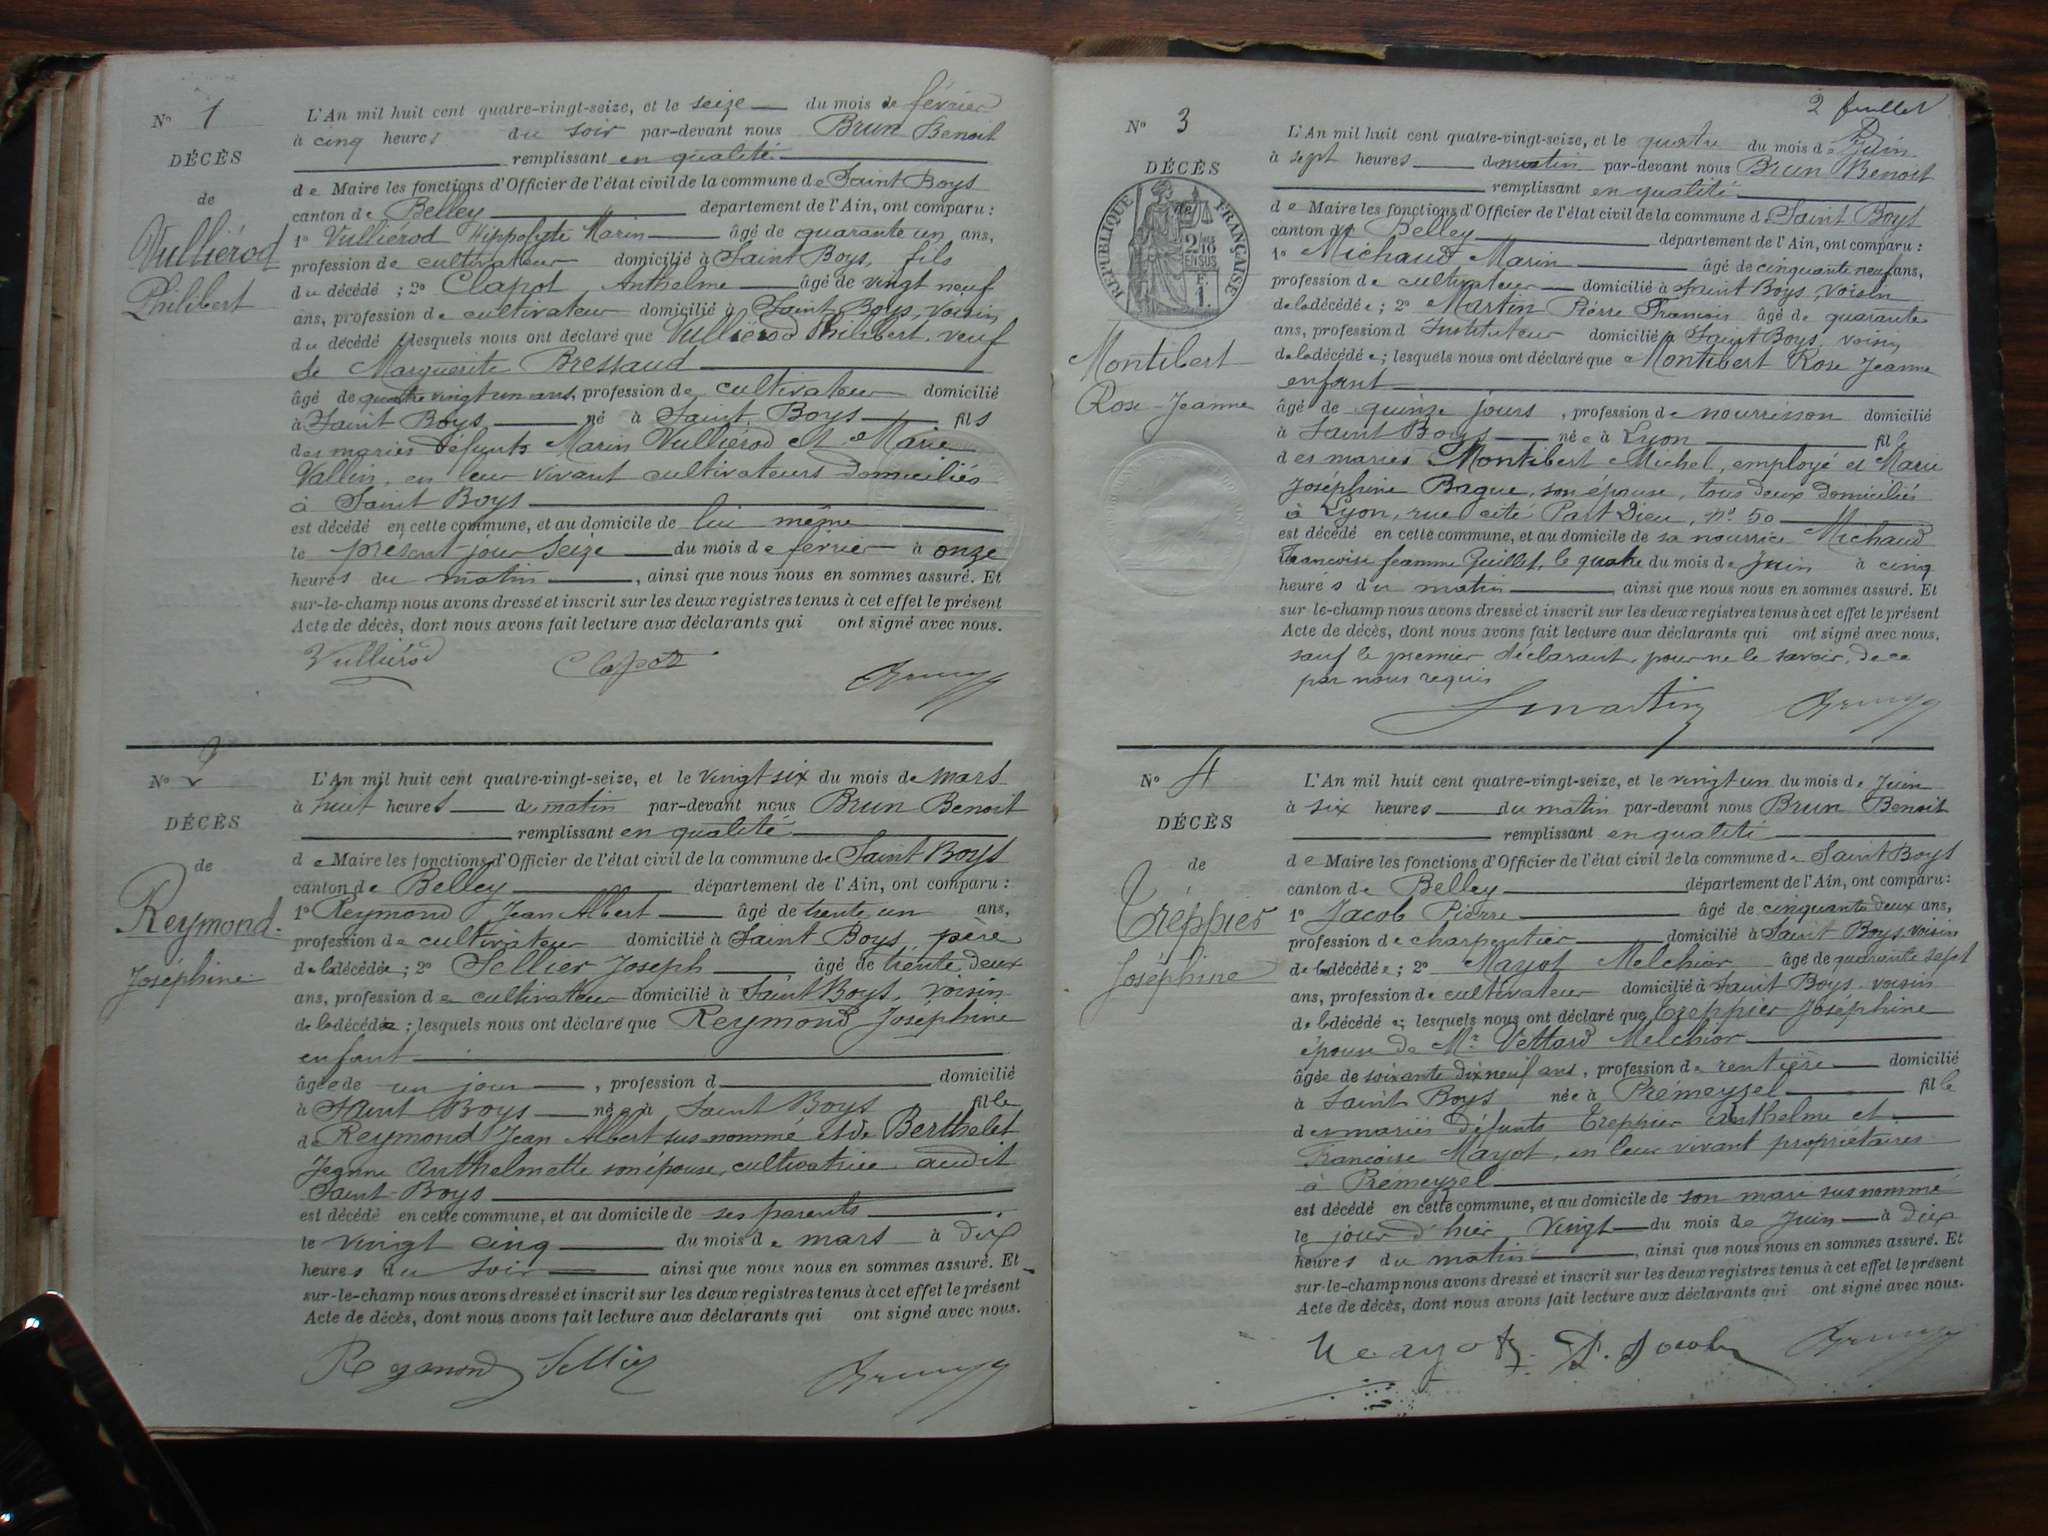 N° 1
DÉCÈS
de
Vulliérod
Philibert
L'An mil huit cent quatre-vingt-seize, et le seize du mois de février
à cinq heures du soir par-devant nous Brun Benoit
remplissant en qualité
de Maire les fonctions d'Officier de l'état civil de la commune de Saint Boys
canton de Belley département de l'Ain, ont comparu :
1° Vulliérod Hippolyte Marin âgé de quarante un ans,
profession de cultivateur domicilié à Saint Boys, fils
du décédé ; 2° Clapot Anthelme âgé de vingt neuf
ans, profession de cultivateur domicilié à Saint Boys, voisin
du décédé lesquels nous ont déclaré que Vulliérod Philibert, veuf
de Marguerite Bressaud
âgé de quatre vingt un ans, profession de cultivateur domicilié
à Saint Boys né à Saint Boys fils
des mariés défunts Marin Vulliérod et Marie
Vallin, en leur vivant cultivateurs domiciliés
à Saint Boys
est décédé en cette commune, et au domicile de lui même
le présent jour seize du mois de février à onze
heures du matin, ainsi que nous nous en sommes assuré. Et
sur-le-champ nous avons dressé et inscrit sur les deux registres tenus à cet effet le présent
Acte de décès, dont nous avons fait lecture aux déclarants qui ont signé avec nous.
Vulliérod Clapot Brun
N° 2
DÉCÈS
de
Reymond
Joséphine
L'An mil huit cent quatre-vingt-seize, et le vingt six du mois de mars
à huit heures du matin par-devant nous Brun Benoit
remplissant en qualité
de Maire les fonctions d'Officier de l'état civil de la commune de Saint Boys
canton de Belley département de l'Ain, ont comparu :
1° Reymond Jean Albert âgé de trente un ans,
profession de cultivateur domicilié à Saint Boys, père
de la décédée ; 2° Sellier Joseph âgé de trente deux
ans, profession de cultivateur domicilié à Saint Boys, voisin
de la décédée ; lesquels nous ont déclaré que Reymond Joséphine
enfant
âgée de un jour, profession d domicilié
à Saint Boys née à Saint Boys fille
de Reymond Jean Albert sus-nommé et de Berthelet
Jeanne Anthelmette son épouse, cultivatrice audit
Saint-Boys
est décédé en cette commune, et au domicile de ses parents
le vingt cinq du mois de mars à dix
heures du soir ainsi que nous nous en sommes assuré. Et
sur-le-champ nous avons dressé et inscrit sur les deux registres tenus à cet effet le présent
Acte de décès, dont nous avons fait lecture aux déclarants qui ont signé avec nous.
Reymond Sellier Brun
2 feuillet
N° 3
DÉCÈS
de
RÉPUBLIQUE FRANÇAISE
Montibert
Rose-Jeanne
L'An mil huit cent quatre-vingt-seize, et le quatre du mois de Juin
à sept heures du matin par-devant nous Brun Benoit
remplissant en qualité
de Maire les fonctions d'Officier de l'état civil de la commune d Saint Boys
canton de Belley département de l'Ain, ont comparu :
1° Michaud Marin âgé de cinquante neuf ans,
profession de cultivateur domicilié à Saint Boys, voisin
de la décédée ; 2° Martin Pierre François âgé de quarante
ans, profession d Instituteur domicilié à Saint Boys, voisin
de la décédée ; lesquels nous ont déclaré que Montibert Rose Jeanne
enfant
âgé de quinze jours, profession de nourrisson domicilié
à Saint Boys née à Lyon fille
des mariés Montibert Michel, employé et Marie
Joséphine Bague, son épouse, tous deux domiciliés
à Lyon, rue cité Part Dieu, n° 50
est décédé en cette commune, et au domicile de sa nourrice Michaud
Françoise femme Quillet, le quatre du mois de Juin à cinq
heures du matin ainsi que nous nous en sommes assuré. Et
sur-le-champ nous avons dressé et inscrit sur les deux registres tenus à cet effet le présent
Acte de décès, dont nous avons fait lecture aux déclarants qui ont signé avec nous,
sauf le premier déclarant, pour ne le savoir, de ce
par nous requis
Martin Brun
N° 4
DÉCÈS
de
Treppier
Joséphine
L'An mil huit cent quatre-vingt-seize, et le vingt un du mois de Juin
à six heures du matin par-devant nous Brun Benoit
remplissant en qualité
de Maire les fonctions d'Officier de l'état civil de la commune de Saint Boys
canton de Belley département de l'Ain, ont comparu :
1° Jacob Pierre âgé de cinquante deux ans,
profession de charpentier domicilié à Saint Boys voisin
de la décédée ; 2° Mayot Melchior âgé de quarante sept
ans, profession de cultivateur domicilié à Saint Boys, voisin
de la décédée ; lesquels nous ont déclaré que Treppier Joséphine
épouse de Mr Vettard Melchior
âgée de soixante dix neuf ans, profession de rentière domicilié
à Saint Boys née à Prémeyzel fille
des mariés défunts Treppier Anthelme et
Françoise Mayot, en leur vivant propriétaires
à Prémeyzel
est décédé en cette commune, et au domicile de son mari susnommé
le jour d'hier vingt du mois de Juin à dix
heures du matin, ainsi que nous nous en sommes assuré. Et
sur-le-champ nous avons dressé et inscrit sur les deux registres tenus à cet effet le présent
Acte de décès, dont nous avons fait lecture aux déclarants qui ont signé avec nous.
Mayot P. Jacob Brun